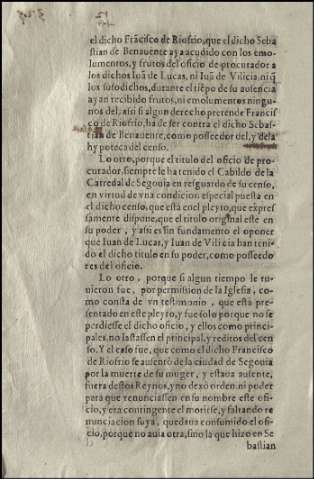 el dicho Frãcisco de Riofrio, que el dicho Seba
stian de Benauente aya acudido con los emo-
lumentos, y frutos del oficio de procurador a
los dichos Iuã de Lucas, ni Iuã de Vilicia, niq̃
los susodichos, durante el tiẽpo de su ausencia
ayan recibido frutos, ni emolumentos ningu-
nos del, assi si algun derecho pretende Francis
co de Riofrio, ha de ser contra el dicho Sebas-
tian de Benauente, como posseedor del, y dela
hypoteca del censo.
Lo otro, porque el titulo del oficio de pro-
curador, siempre le ha tenido el Cabildo de la
Catredal de Segouia en resguardo de su censo,
en virtud de vna condicion especial puesta en
el dicho censo, que está en el pleyto, que expres
samente dispone, que el titulo original este en
su poder, y assi es sin fundamento el oponer
que Iuan de Lucas, y Iuan de Vilicia han teni-
do el dicho titulo en su poder, como posseedo
res del oficio.
Lo otro, porque si algun tiempo le tu-
uieron fue, por permission de la Iglesia, co-
mo consta de vn testimonio, que está pre-
sentado en este pleyto, y fue solo porque no se
perdiesse el dicho oficio, y ellos como princi-
pales, no lastassen el principal, y reditos del cen
so. Y el caso fue, que como el dicho Francisco
de Riofrio se ausentò de la ciudad de Segouia
por la muerte de su muger, y estaua ausente,
fuera destos Reynos, y no dexò orden, ni poder
para que renunciassen en su nombre este ofi-
cio, y era contingente el morirse, y faltando re
nunciacion suya, quedaua consumido el ofi-
cio, porque no auia otra, sino la que hizo en Se
bastian